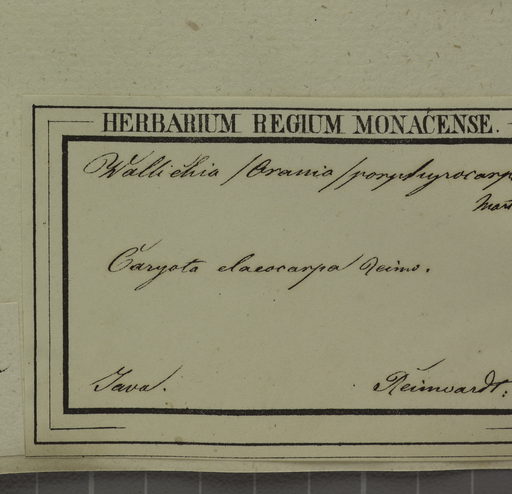 HERBARIUM REGIUM MONACENSE.
Wallichia /Orania/ porphyrocarp
Mart
Caryota elaeocarpa Reinw.
Java.
Reinwardt.